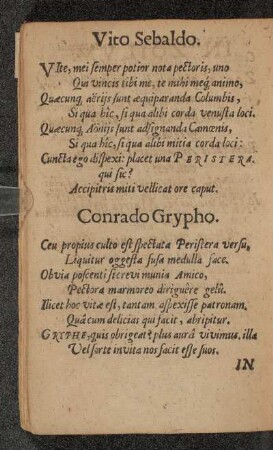 Vito Sebaldo.
VIte, mei semper potior nota pectoris, uno
Qui vincis tibi me, te mihi meq́; animo,
Quæcunq; aërijs sunt æquiparanda Columbis,
Si qua hîc, si qua alibi corda venusta loci.
Quæcunq; Aönijs sunt adsignanda Camœnis,
Si qua hîc, si qua alibi mitia corda loci:
Cuncta ego dispexi: placet una PERISTERA.
qui sic?
Accipitris miti vellicat ore caput.
Conrado Grypho.
Ceu propius culto est spectata Peristera versu,
Liquitur oggesta fusa medulla face.
Obvia poscenti screvi munia Amico,
Pectora marmoreo diriguêre gelû.
Ilicet hoc vitæ est, tantam aspexisse patronam.
Quâ cum delicias qui facit, abripitur.
GRYPHE, quis obrigeat? plus aurâ vivimus, illa
Vel forte invita nos facit esse suos.
IN